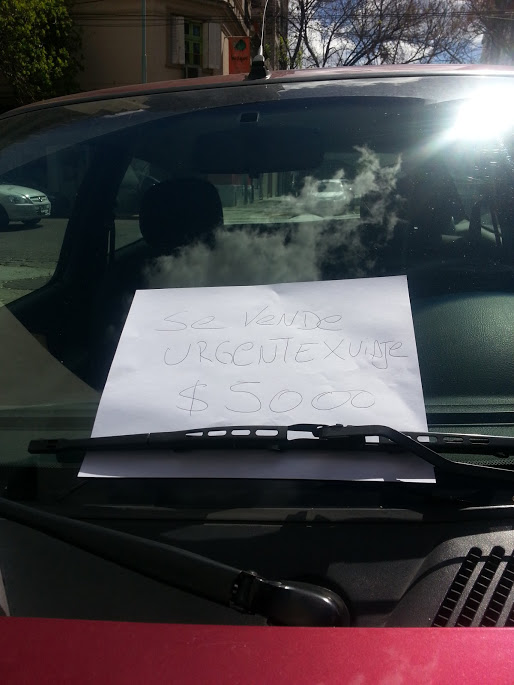 Se VeNDe
URGENTE X VIAJE
$ 5000